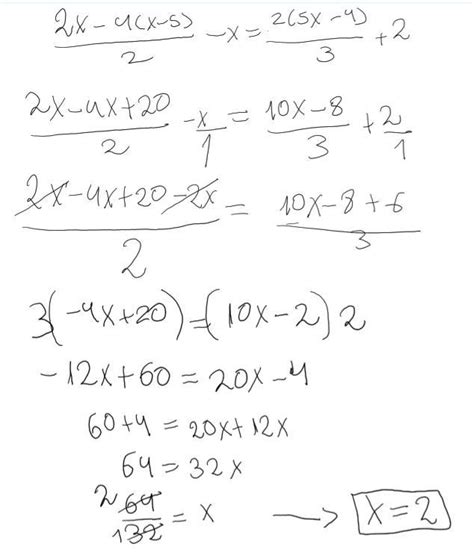 (2x-4(x-5))/2 -x = 2(5x-4)/3 +2
(2x-4x+20)/2 - x/1 = (10x-8)/3 + 2/1
(2x-4x+20-2x)/2 = (10x-8+6)/3
3(-4x+20)=(10x-2)2
-12x+60 = 20x-4
60+4 = 20x+12x
64 = 32x
2 64/132 = x → x=2